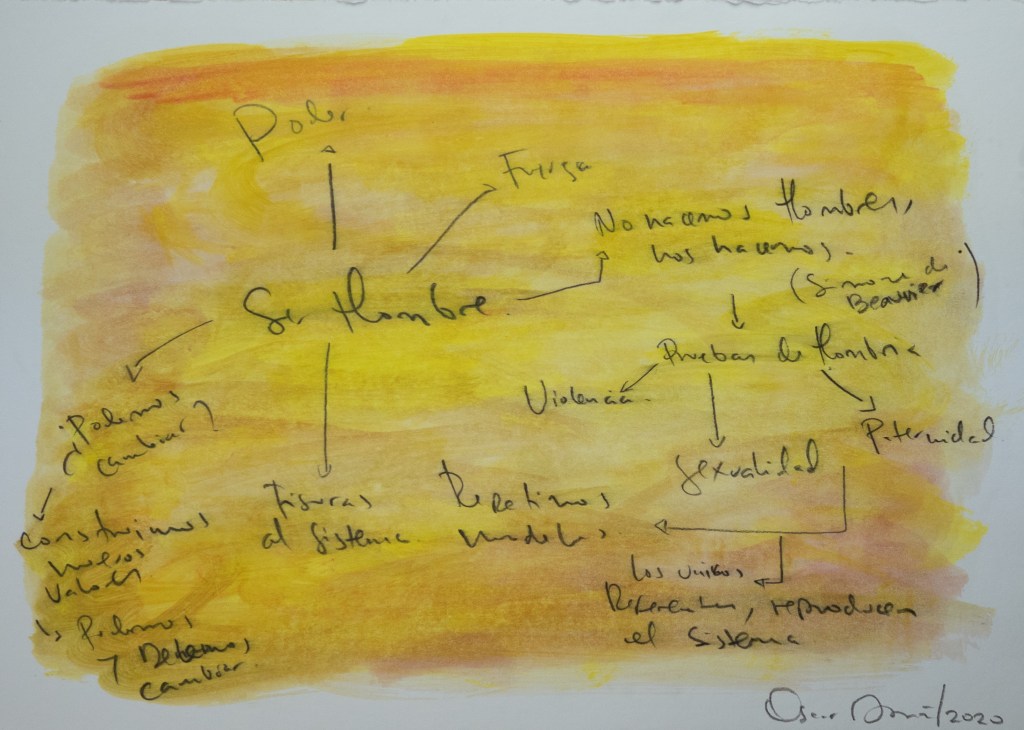 Poder
Fuerza
No nacemos Hombres,
nos hacemos.
(Simone de
Beauvier)
Ser Hombre.
Pruebas de Hombria
Violencia.
Paternidad
Sexualidad
¿Podemos
cambiar?
Construimos
nuevos
valores
Podemos
y Debemos
cambiar.
Fisuras
al Sistema.
Repetimos
modelos.
Los unicos
Referentes, reproducen
el Sistema
Oscar /2020